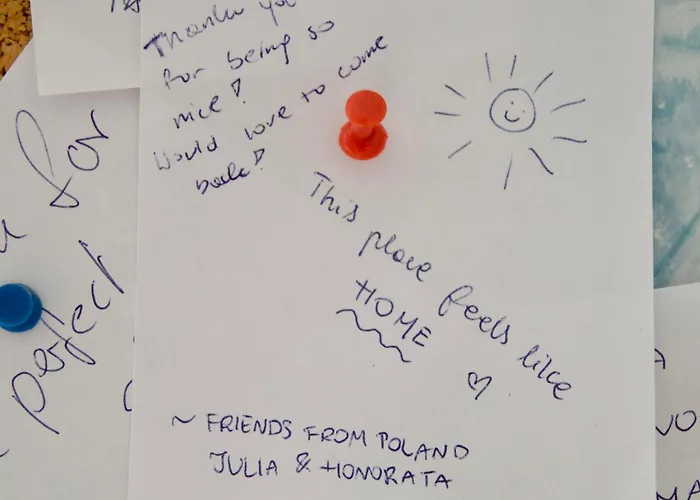 Thank you
for being so
nice!
Would love to come
back!
This
place feels like
HOME
♡
~ FRIENDS FROM POLAND
JULIA & HONORATA
for
perfect